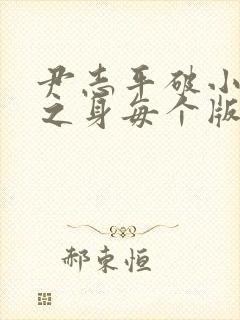 尹志平破小
之身每个版
郝东恒